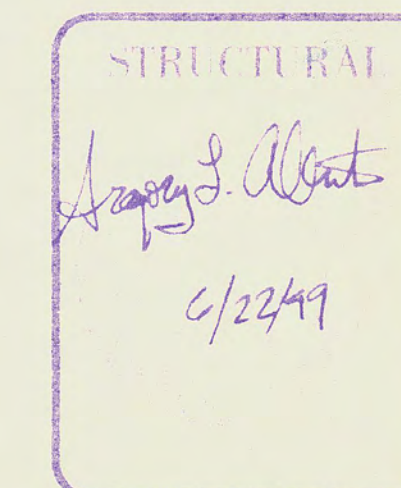 STRUCTURAL
Gregory L. Alberts
6/22/99